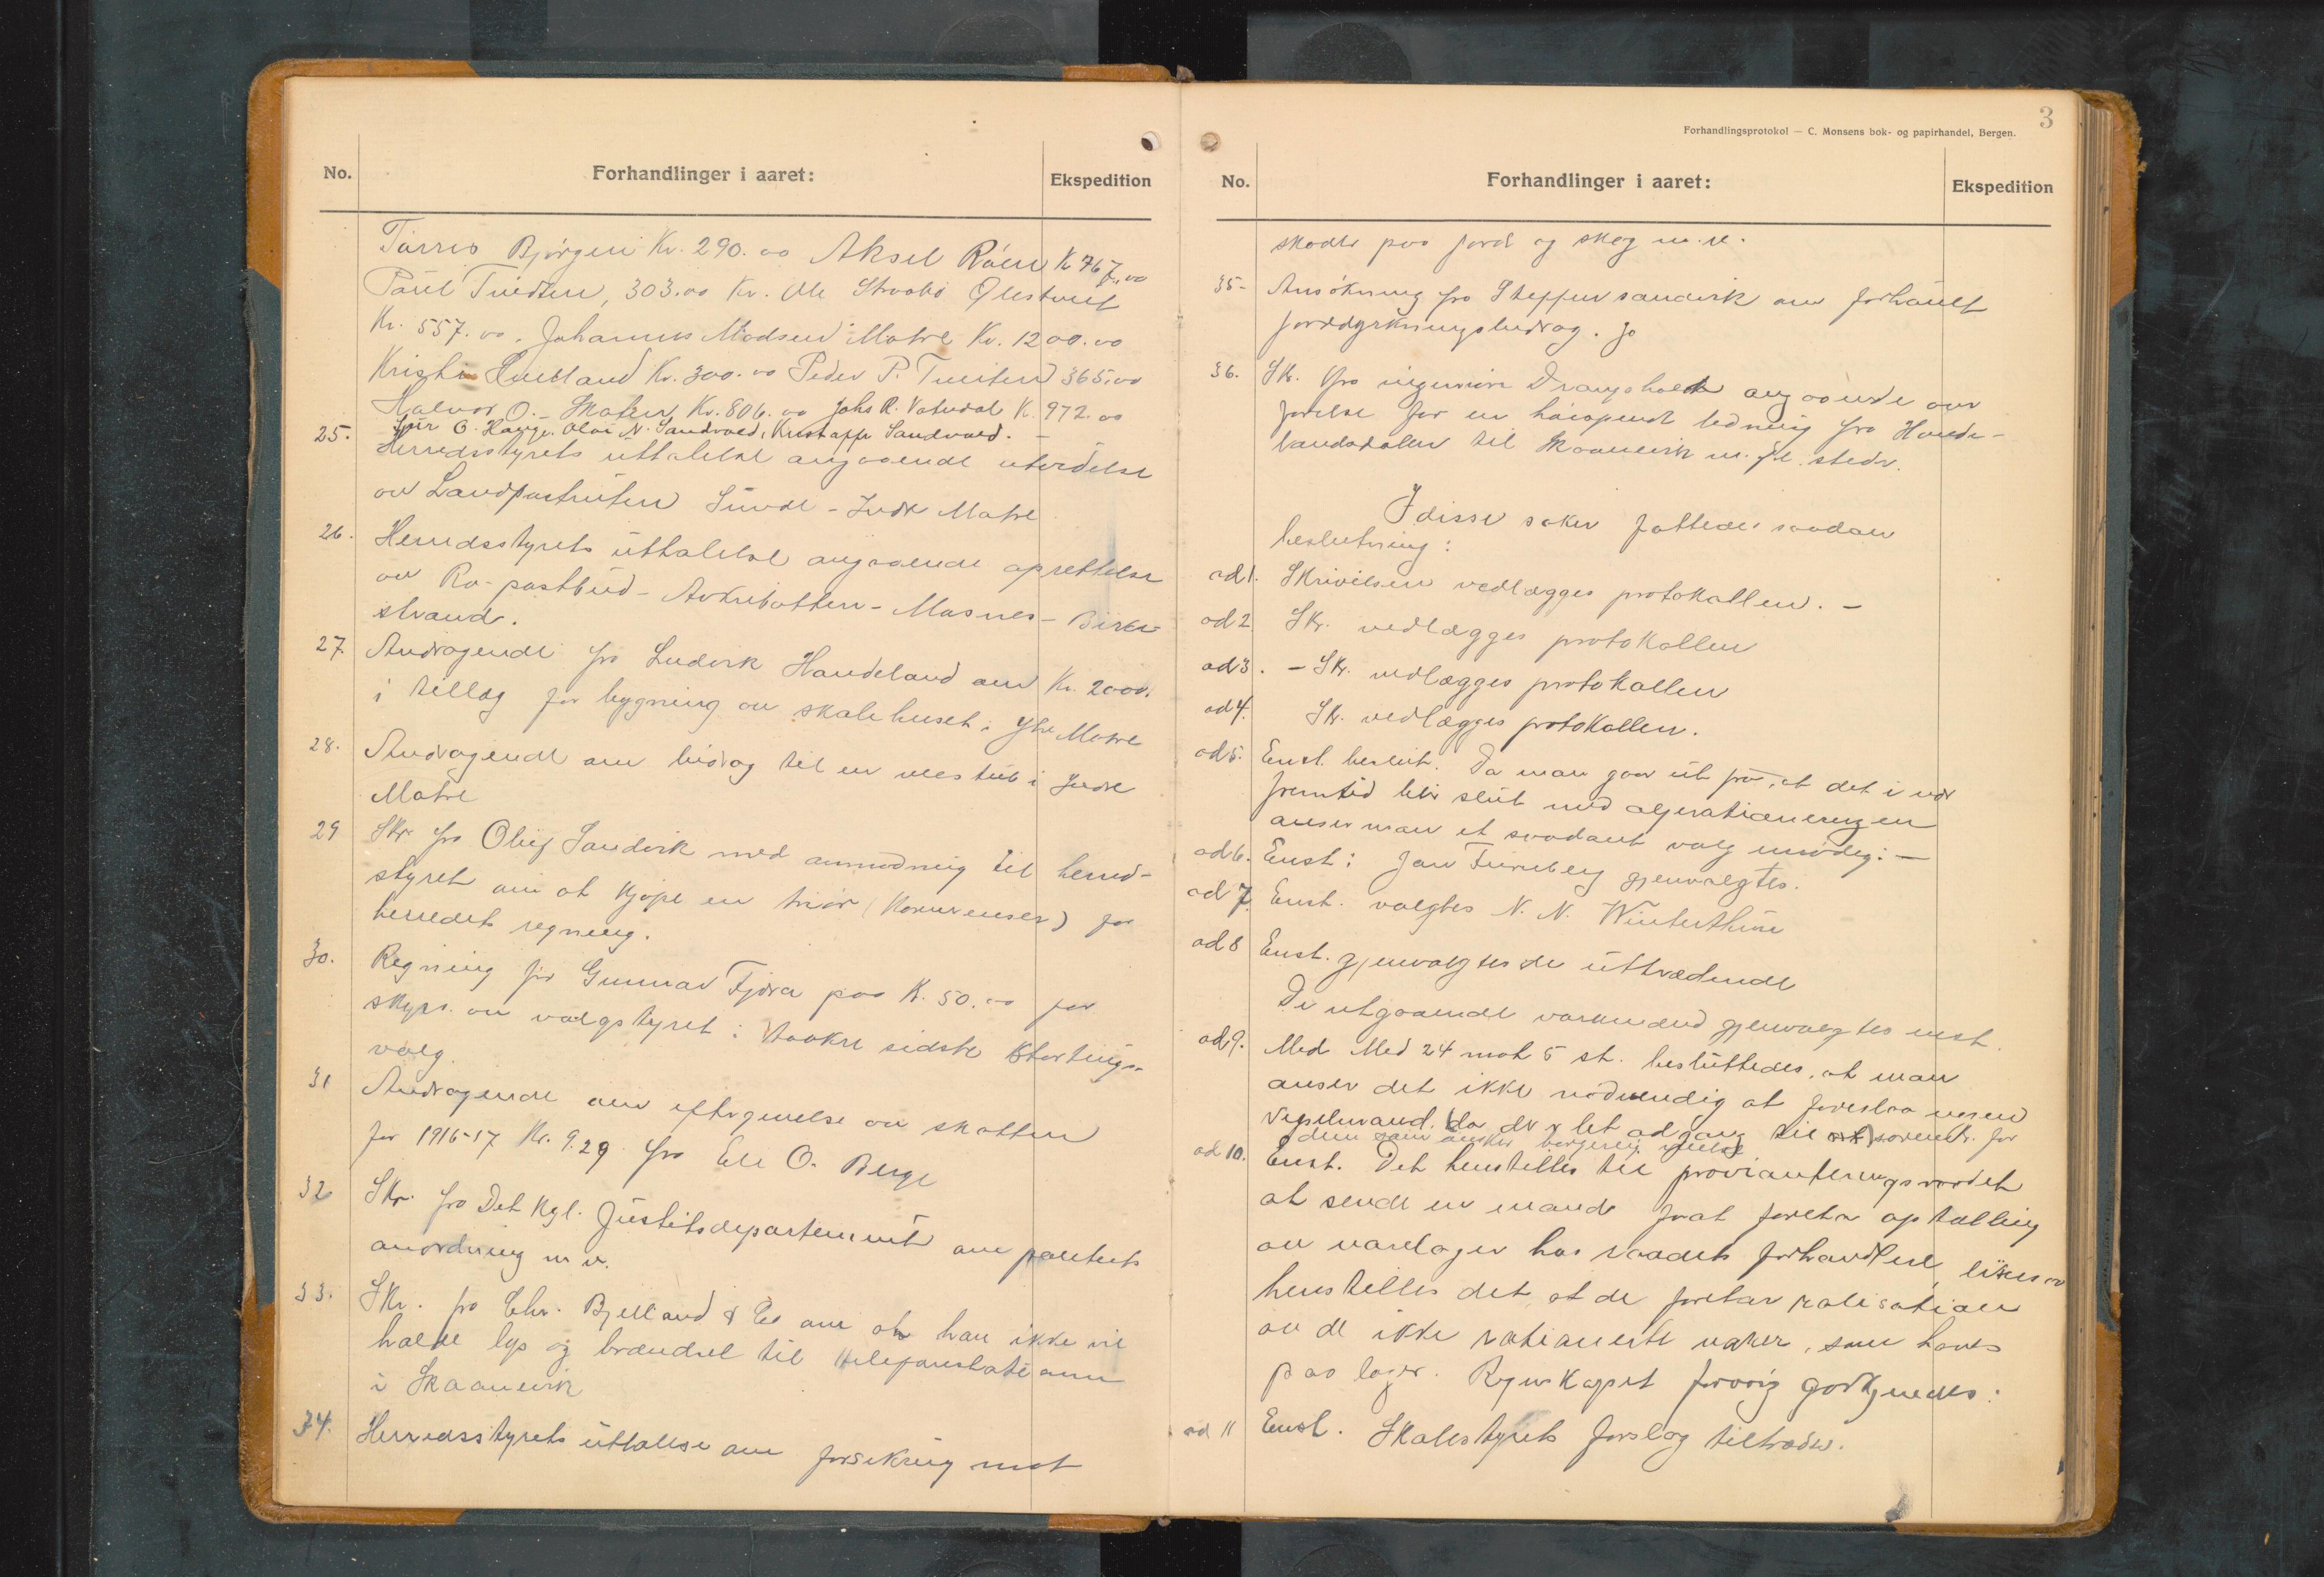 No.
Forhandlinger i aaret:
Ekspedition
Tørres Bjørgen Kr. 290.00 Aksel Røen Kr 767.00
Paul Tveiten, 303.00 Kr. Ole Straabø Ølestveit
Kr. 557.00. Johannes Madsen Matre Kr. 1200.00
Kristi Husland Kr. 300.00 Peder P. Tveiten 365.00
Halvor O. Skaten Kr. 806.00 Johs R. Vatndal K. 972.00
O. Hauge. Olai N. Sandvoed, Kristoffer Sandvoed. —
25. Herredsstyrets uttalelse angaaende utvidelse
av Landpostruten Sunde - Indre Matre
26. Herredsstyrets uttalelse angaaende oprettelse
av Ro-postbud - Aakrebotten - Masnes - Birke-
strand.
27. Andragende fra Ludvik Handeland om Kr. 2000.
i tillæg for bygning av skolehuset i Ytre Matre
28. Andragende om bidrag til en veistub i Indre
Matre
29 Skr fra Oluf Sandvik med anmodning til herred-
styret om at kjøpe en triør (Kornrenser) for
herredets regning.
30. Regning fra Gunnar Fjæra paa K. 50.00 for
skyss av valgstyret i Aakre sidste Stortings-
valg.
31 Andragende om eftergivelse av skatten
for 1916-17 Kr. 9.29 fra Ele O. Berge
32 Skr. fra Det Kgl. Justitsdepartement om politiets
anordning m v.
33. Skr. fra Chr. Bjelland & Co om at han ikke vil
holde lys og brændsel til telefonstationen
i Skaanevik
34. Herredsstyrets uttalelse om forsikring mot
3
Forhandlingsprotokol — C. Monsens bok- og papirhandel, Bergen.
No.
Forhandlinger i aaret:
Ekspedition
skade paa jord og skog m. v.
35- Ansøkning fra Steffen Sandvik om forhøiet
jorddyrkningsbidrag. Jo
36. Skr. fra ingeniør Drangsholdt angaaende over
førelse for en høispendt ledning fra Hande-
landsdalen til Skaanevik m. fl. steder.
I disse saker fattedes saadan
beslutning:
ad 1. Skrivelsen vedlægges protokollen. —
ad 2. Skr. vedlægges protokollen
ad 3. — Skr. vedlægges protokollen
ad 4. Skr. vedlægges protokollen.
ad 5. Enst. beslut. Da man gaar ut fra, at det i nær
fremtid blir slut med oprationeringen
anser man et saadant valg unødig: —
ad 6. Enst: Jan Turneberg gjenvalgtes.
ad 7. Enst. valgtes N. N. Winterthun
ad 8 Enst. gjenvalgtes de uttrædende
De utgaaende varamænd gjenvalgtes enst.
ad 9. Med Med 24 mot 5 st. besluttedes, at man
anser det ikke nødvendig at foreslaa nogen
Vigselmand. da der er let adgang til sorensk. for
dem som ønsker borgerlig vielse
ad 10. Enst. Det henstilles til provianteringsraadet
at sende en mand for at foreta optælling
av varelager hos raadets forhandlere, likesaa
henstilles det, at de foretar realisation
av de ikke rationerte varer, som haves
paa lager. Regnskapet forøvrig godkjendes:
ad 11 Enst. Skolestyrets forslag tiltrædes.